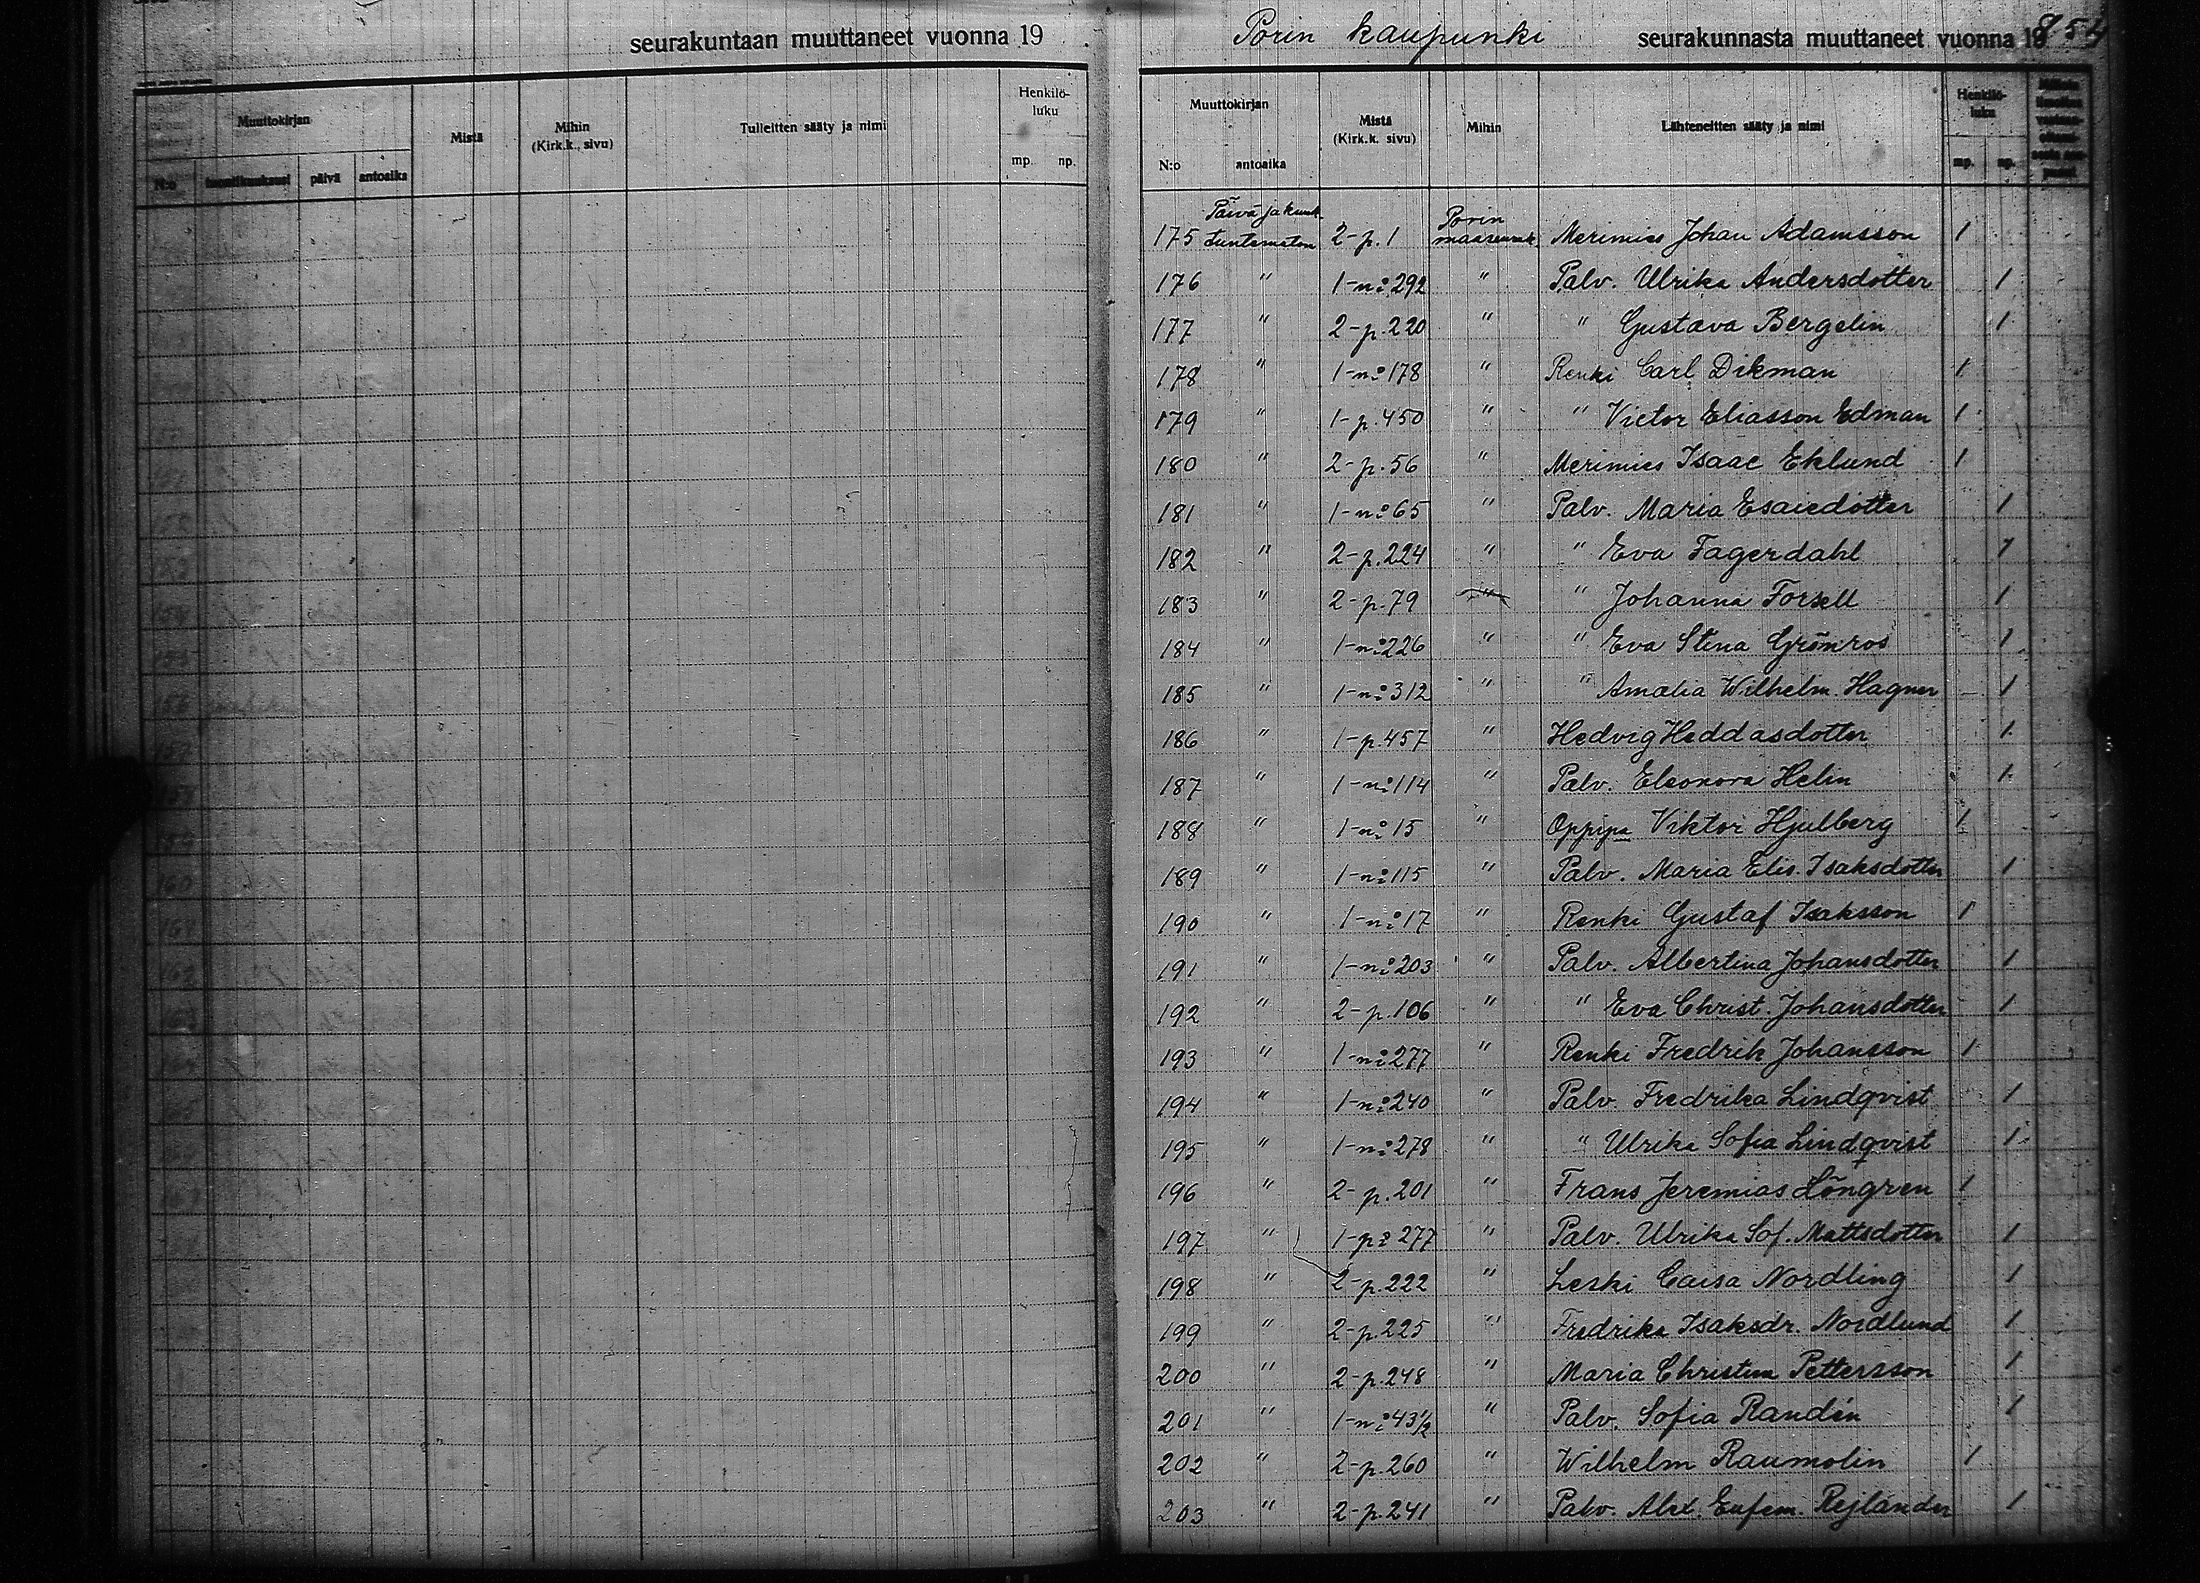 seurakuntaan muuttaneet vuonna 19
Muuttokirjan
Mistä
Mihin
(Kirk.k., sivu)
Tulleitten sääty ja nimi
Henkilö-
luku
N:o
päivä
antoaika
mp. np.
Porin kaupunki seurakunnasta muuttaneet vuonna 1854
Muuttokirjan
Mistä
(Kirk.k. sivu)
Mihin
Lähteneitten sääty ja nimi
Henkilö-
luku
N:o antoaika
mp. np.
Päivä ja kuuk. Porin
175 tuntematon 2-p.1 maaseurak. Merimies Johan Adamsson 1
176 " 1-n:o 292 " Palv. Ulrika Andersdotter 1
177 " 2-p.220 " " Gustava Bergelin 1
178 " 1-n:o 178 " Renki Carl Dikman 1
179 " 1-p.450 " " Victor Eliasson Edman 1
180 " 2-p.56 " Merimies Isaac Eklund 1
181 " 1-n:o 65 " Palv. Maria Esaiedotter 1
182 " 2-p.224 " " Eva Fagerdahl 1
183 " 2-p.79 " " Johanna Forsell 1
184 " 1-n:o 226 " " Eva Stina Grönros 1
185 " 1-n:o 312 " " Amalia Wilhelm. Hagner 1
186 " 1-p.457 " Hedvig Heddasdotter 1
187 " 1-n:o 114 " Palv. Eleonora Helin 1
188 " 1-n:o 15 " Oppipa Viktor Hjulberg 1
189 " 1-n:o 115 " Palv. Maria Elis. Isaksdotter 1
190 " 1-n:o 17 " Renki Gustaf Isaksson 1
191 " 1-n:o 203 " Palv. Albertina Johansdotter 1
192 " 2-p.106 " " Eva Christ. Johansdotter 1
193 " 1-n:o 277 " Renki Fredrik Johansson 1
194 " 1-n:o 240 " Palv. Fredrika Lindqvist 1
195 " 1-n:o 278 " " Ulrika Sofia Lindqvist 1
196 " 2-p.201 " Frans Jeremias Löngren 1
197 " 1-p: 277 " Palv. Ulrika Sof. Mattsdotter 1
198 " 2-p.222 " Leski Caisa Nordling 1
199 " 2-p.225 " Fredrika Isaksdr. Nordlund 1
200 " 2-p.248 " Maria Christina Pettersson 1
201 " 1-n:o 43½ " Palv. Sofia Randén 1
202 " 2-p.260 " Wilhelm Raumolin 1
203 " 2-p.241 " Palv. Alex. Eufem. Rejlander 1